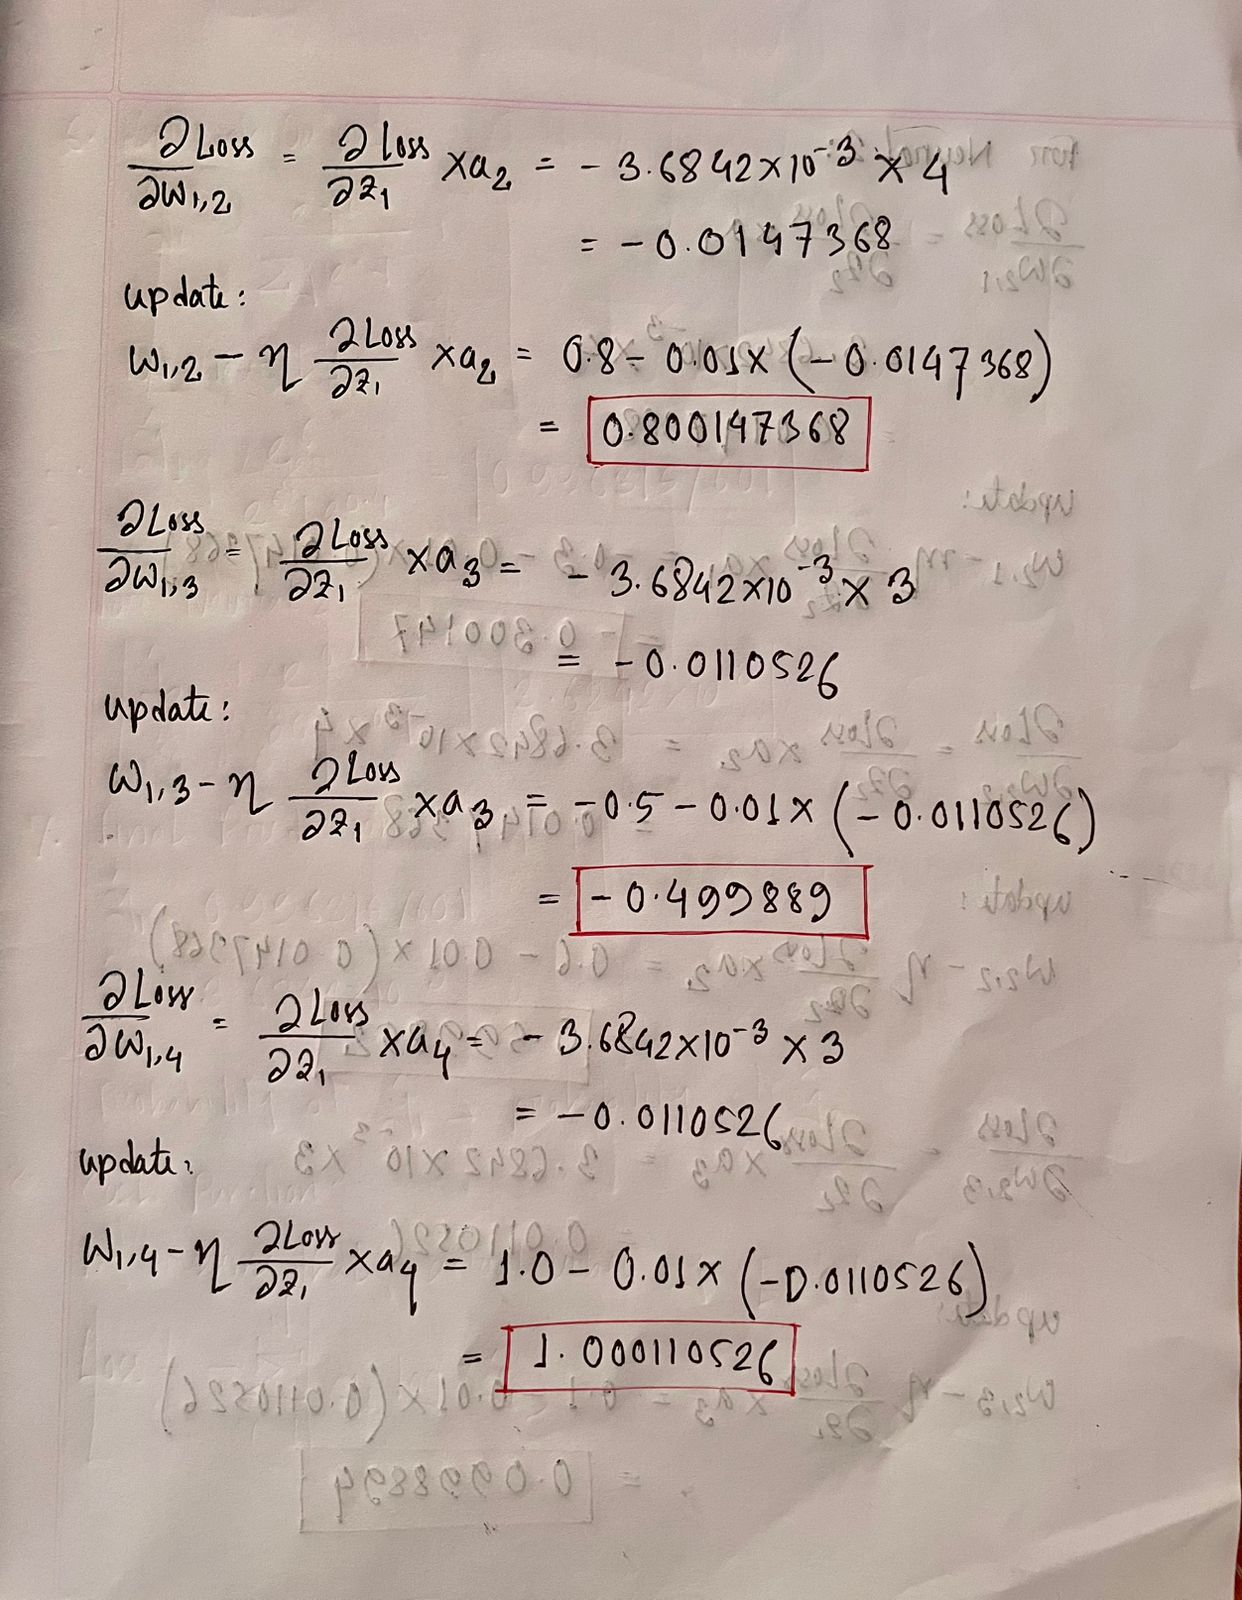 ∂Loss/∂w₁,₂ = ∂Loss/∂z₁ × a₂ = - 3.6842×10⁻³ × 4
= - 0.0147368
update:
w₁,₂ - η ∂Loss/∂z₁ × a₂ = 0.8 - 0.01 × (- 0.0147368)
= 0.800147368
∂Loss/∂w₁,₃ = ∂Loss/∂z₁ × a₃ = - 3.6842×10⁻³ × 3
= - 0.0110526
update:
w₁,₃ - η ∂Loss/∂z₁ × a₃ = -0.5 - 0.01 × (- 0.0110526)
= - 0.499889
∂Loss/∂w₁,₄ = ∂Loss/∂z₁ × a₄ = - 3.6842×10⁻³ × 3
= - 0.0110526
update:
w₁,₄ - η ∂Loss/∂z₁ × a₄ = 1.0 - 0.01 × (-0.0110526)
= 1.000110526